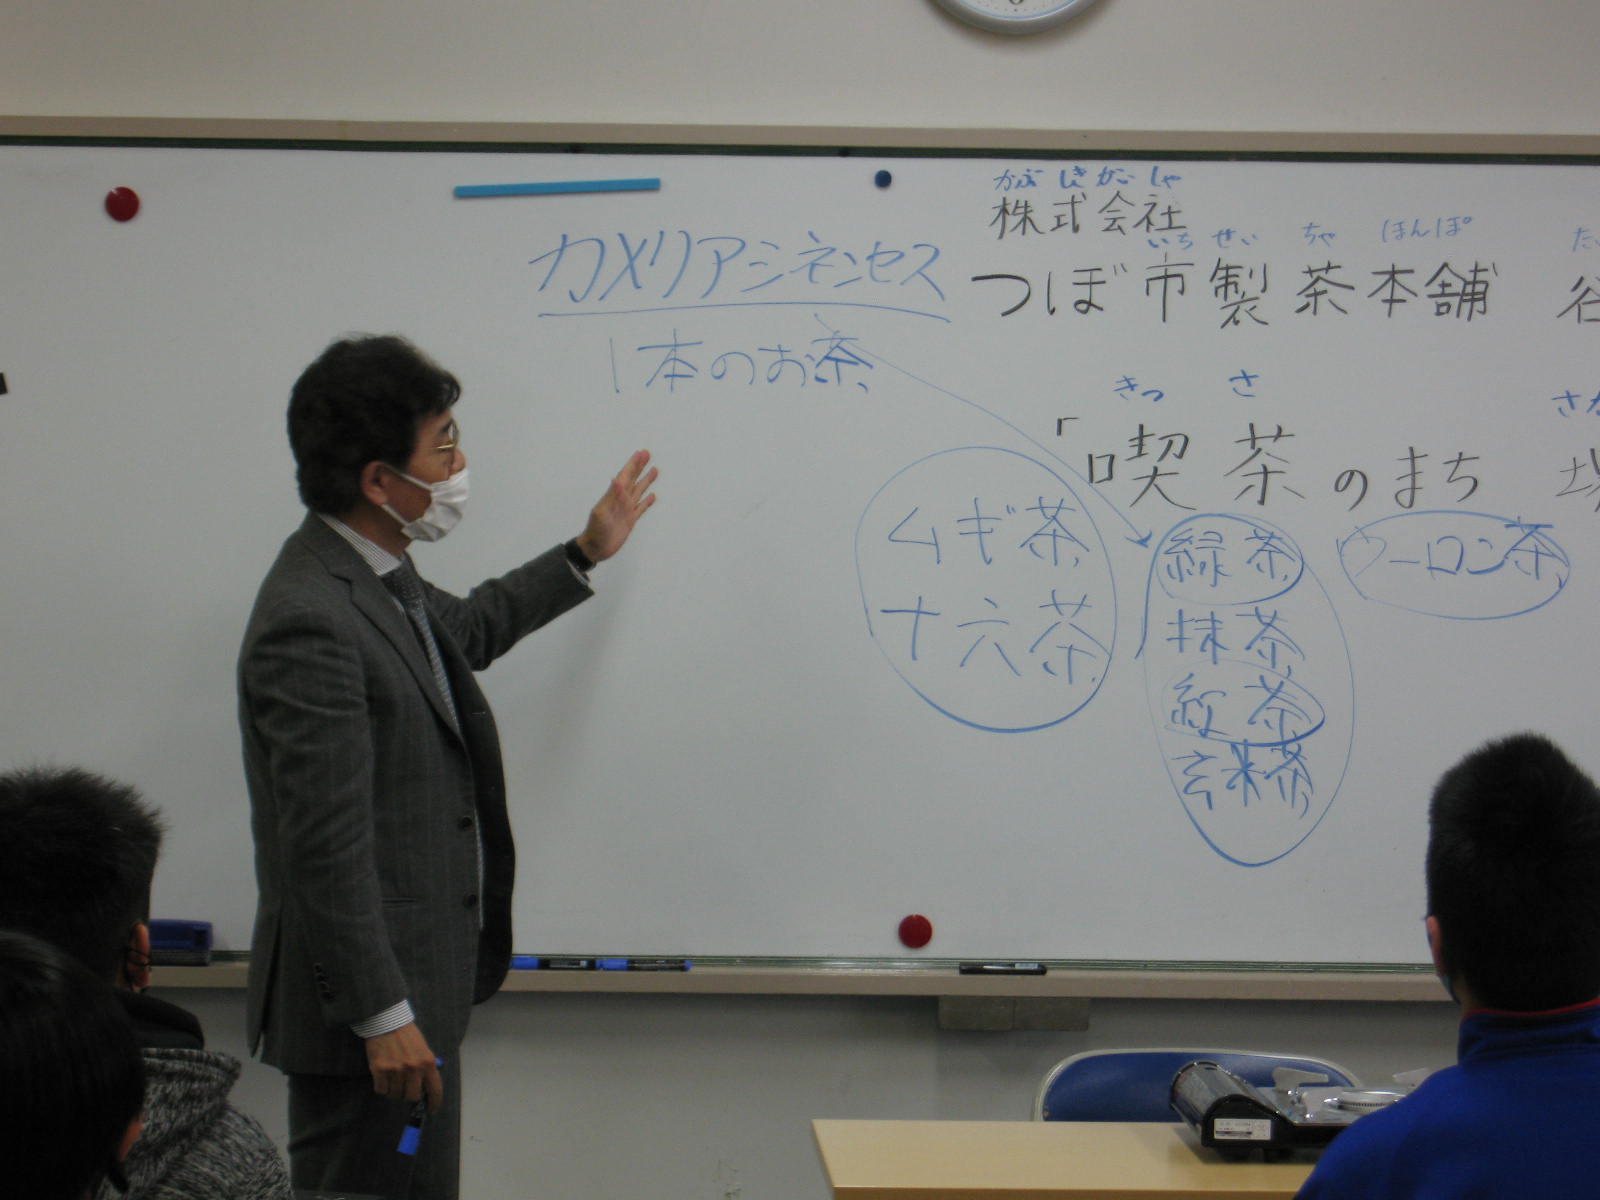 かぶしきがいしゃ
株式会社
いちせいちゃほんぽ
つぼ市製茶本舗 谷
カメリアシネンセス
1本のお茶
きっさ
「喫茶のまち
ムギ茶
十六茶
緑茶
抹茶
紅茶
玄米茶
ウーロン茶